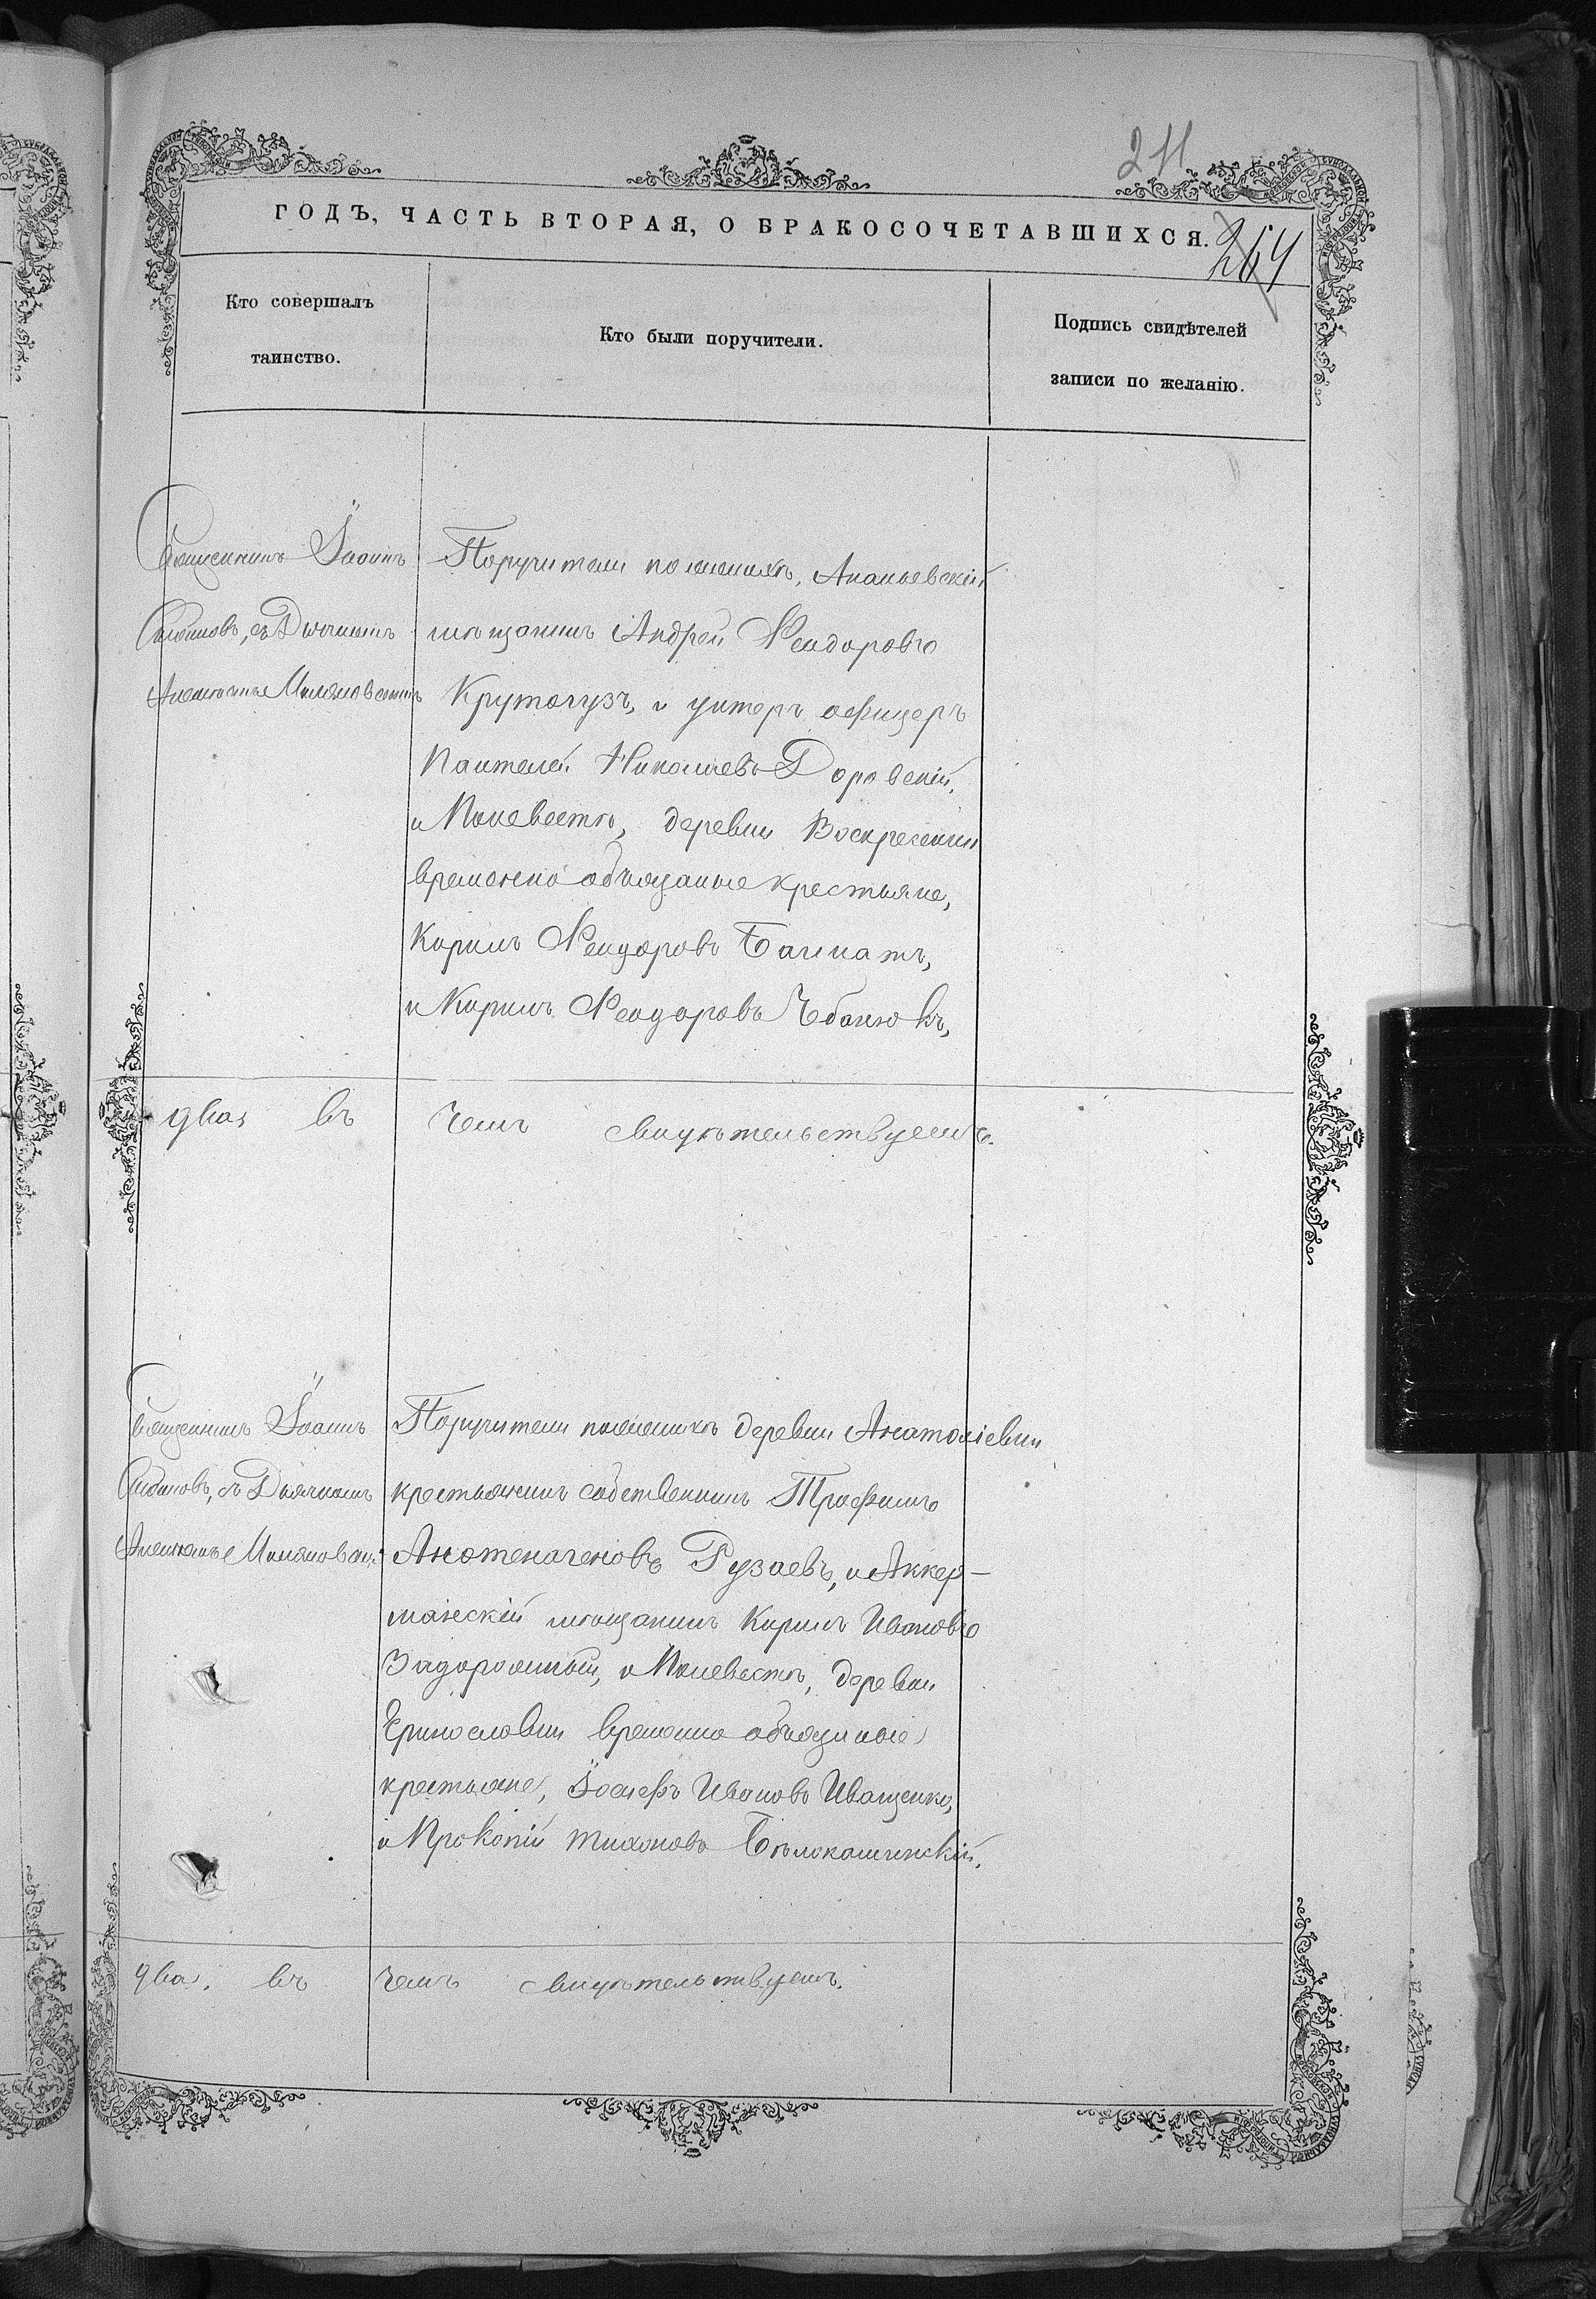 211
ГОДЪ, ЧАСТЬ ВТОРАЯ, О БРАКОСОЧЕТАВШИХСЯ.
264
Кто совершалъ
таинство.
Кто были поручители.
Подпись свидѣтелей
записи по желанію.
Священникъ Іоаннъ
съ Дьячкомъ
Поручители по женихѣ, Ананьевскій
мѣщанинъ Андрей Феодоровъ
Крутогузъ, и унтеръ офицеръ
Пантелей Николаевъ Доровскій,
и По невестѣ, деревни Воскресенки
временно обязаные крестьяне,
Кирилъ Феодоровъ
и Кирилъ Феодоровъ
два, въ чемъ свидѣтельствуемъ.
Священникъ Іоаннъ
съ Дьячкомъ
Поручители по женихѣ деревни Анатоліевки
крестьянинъ собственникъ Трофимъ
Рузаевъ, и Аккер-
манскій мѣщанинъ Кирилъ Ивановъ
Задорожный, и По невестѣ, деревни
временно обязаные
крестьяне, Іосифъ Ивановъ Иващенко,
и Прокопій Тихоновъ
два, въ чемъ свидѣтельствуемъ.